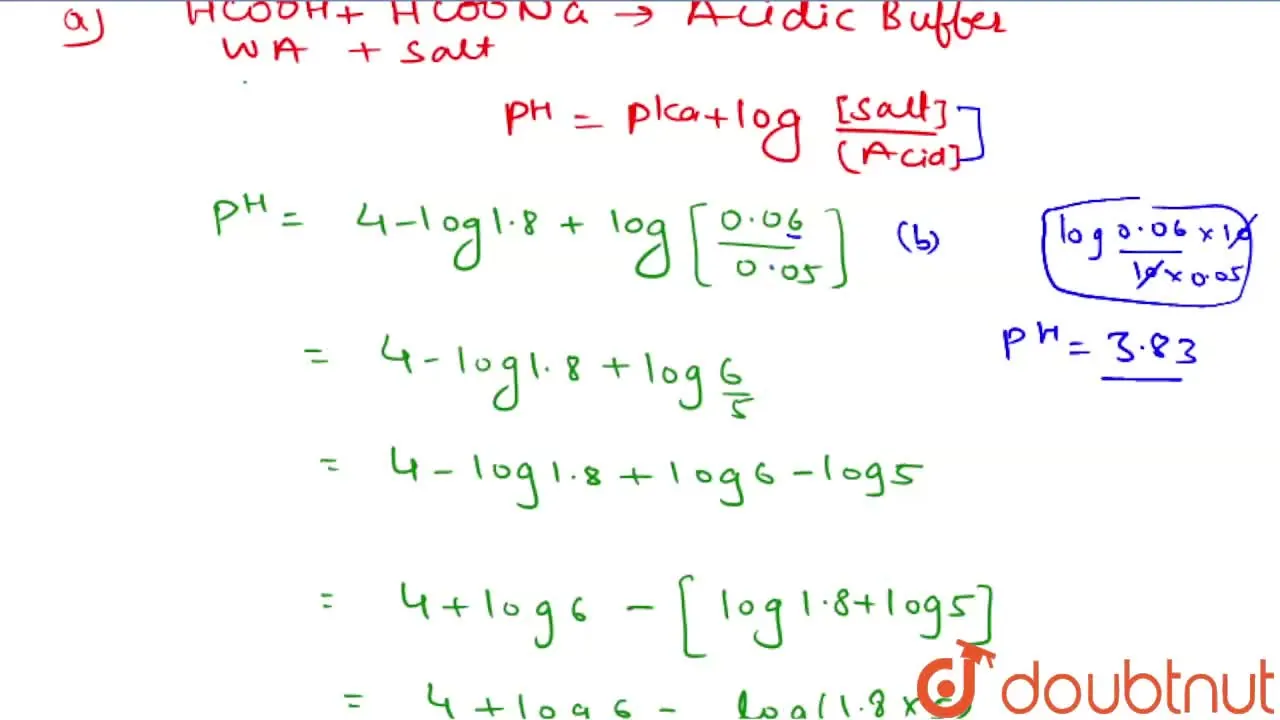 a) HCOOH + HCOONa → Acidic Buffer
WA + Salt
pH = pka + log [Salt]/(Acid]
pH = 4 - log1.8 + log [0.06/0.05] (b) log 0.06 × 10/10 × 0.05
= 4 - log1.8 + log 6/5 pH = 3.83
= 4 - log1.8 + log6 - log5
= 4 + log6 - [log1.8 + log5]
= 4 + log6 - log(1.8 × 5)
doubtnut